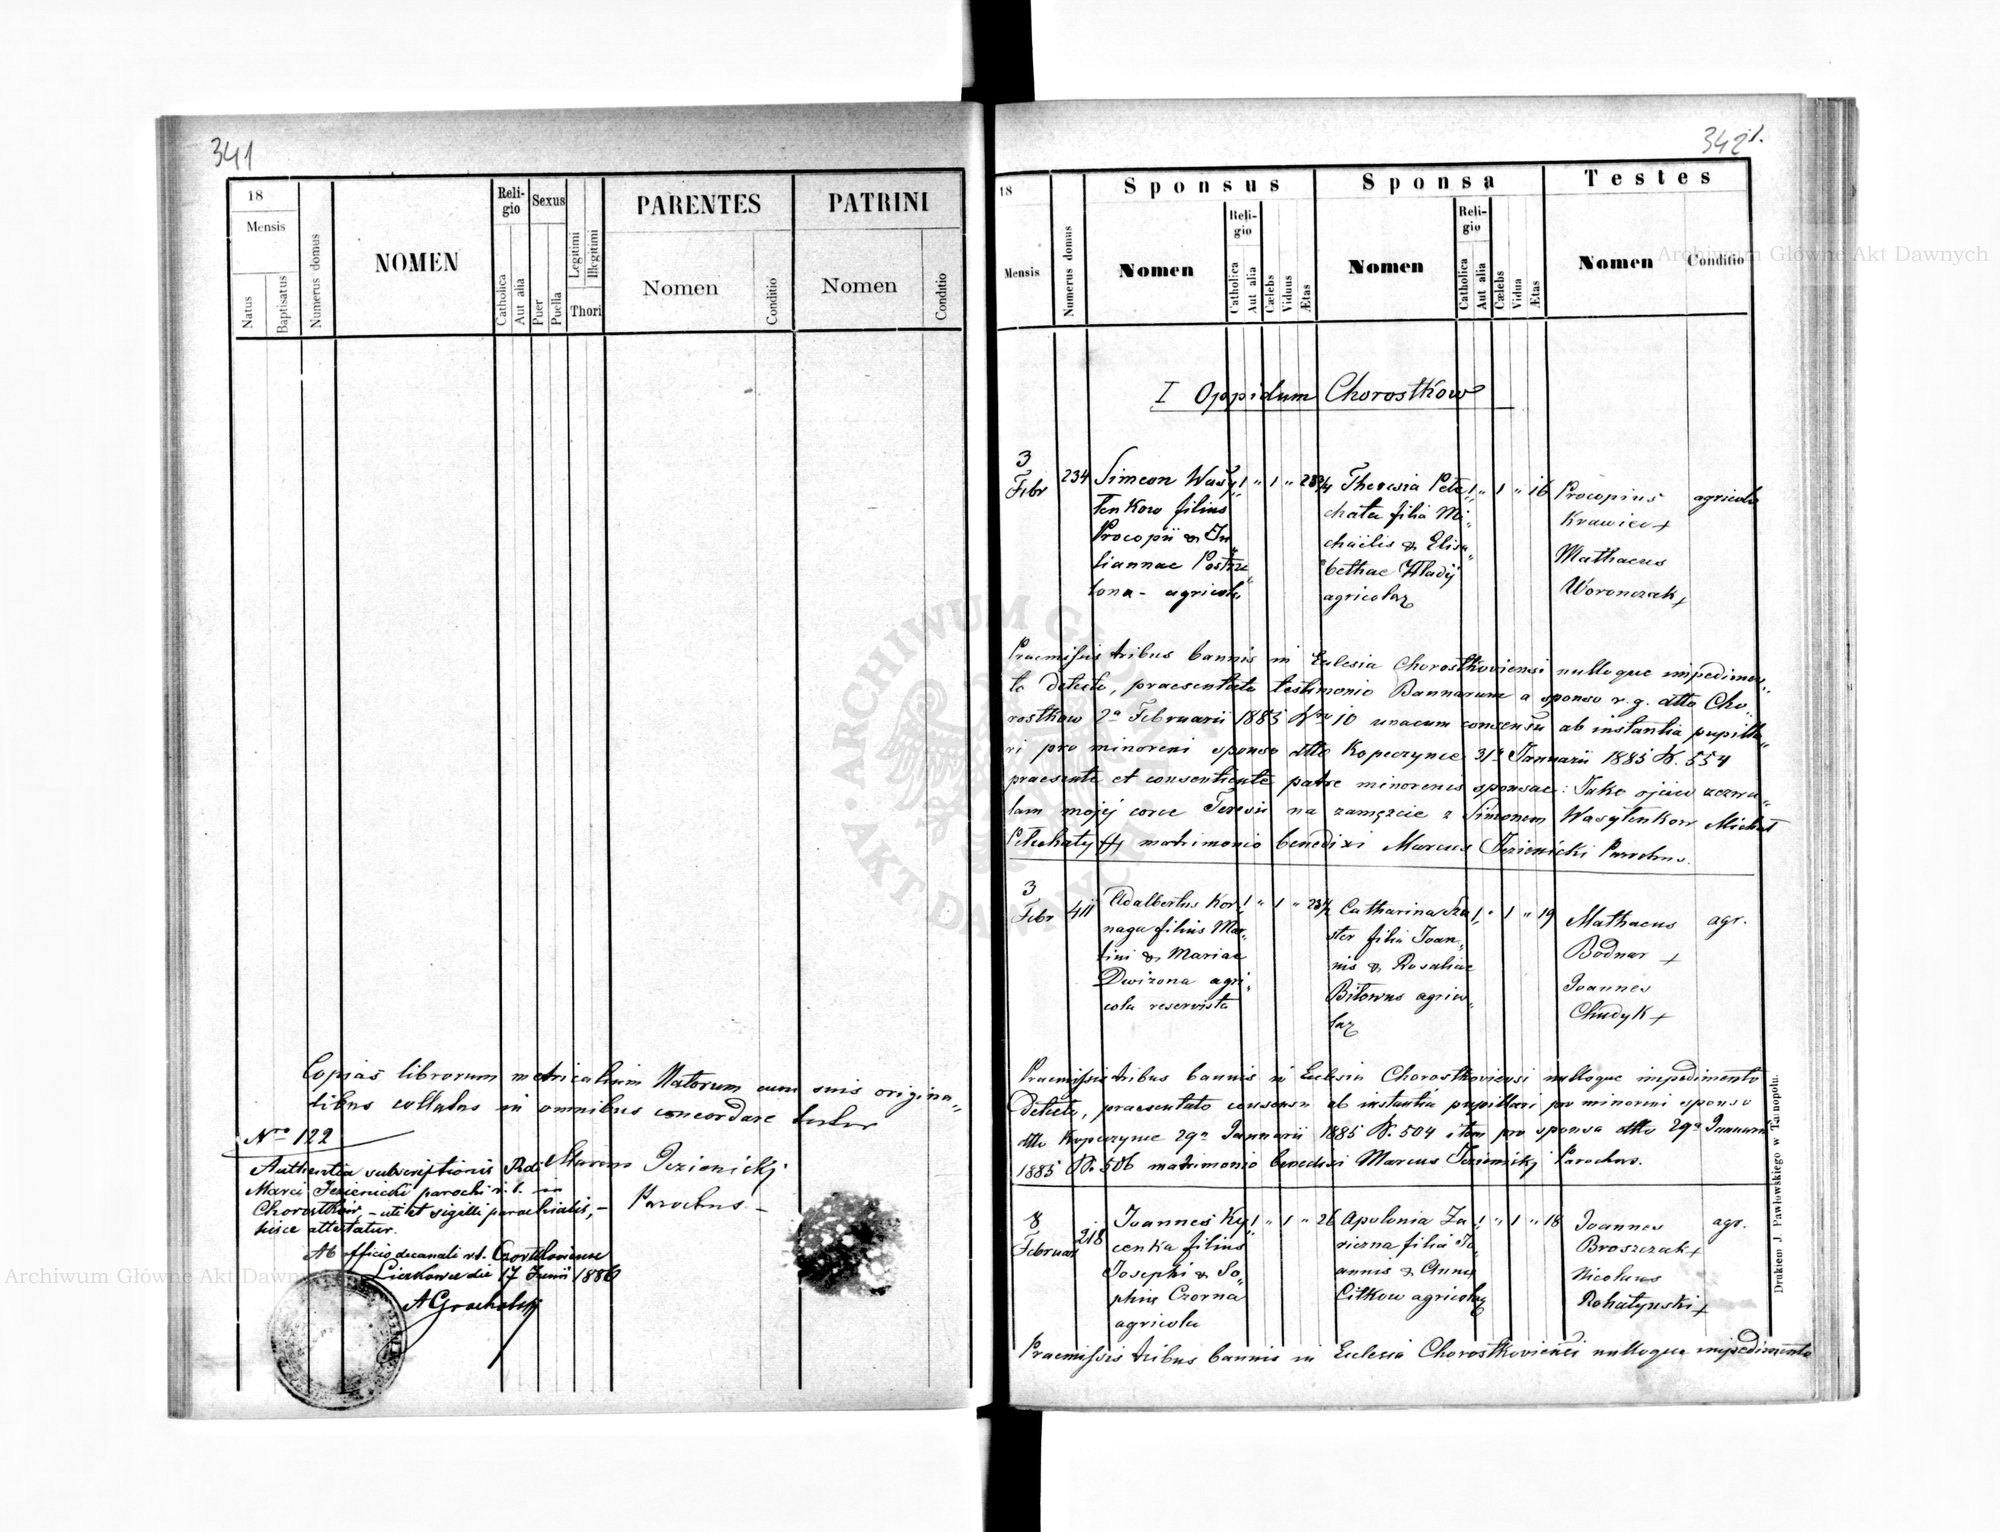 341
18
Mensis
Natus
Baptisatus
Numerus domus
NOMEN
Religio
Catholica
Aut alia
Sexus
Puer
Puella
Legitimi
Illegitimi
Thori
PARENTES
Nomen
Conditio
PATRINI
Nomen
Conditio
Copias librorum metricalium Natorum cum suis origina„
libus collatas in omnibus concordare testor
Marcus Jezienicki
Parochus
Nro 122
Authentia subscriptionis Rdi
Marci Jezienicki parochi r. l. in
Chorostków, - uti et sigilli parochialis, -
hisce attestatur.
Ab officio decanali r. l. Czortkoviensi
Liczkowce die 17 Junii 1886
342
1.
18
Mensis
Numerus domus
Sponsus
Nomen
Religio
Catholica
Aut alia
Cælebs
Viduus
Ætas
Sponsa
Nomen
Religio
Catholica
Aut alia
Cælebs
Vidua
Ætas
Testes
Nomen
Conditio
I Oppidum Chorostkow
3
Febr
234
Simeon Wasy„
tenkow filius
Procopii & Ju„
liannae Postrze„
lona - agricola
1 „ 1 „ 23¾
Theresia Pele„
chata filia Mi„
chaëlis & Elisa„
bethae Hladij
agricolaz
1 „ 1 „ 16
Procopius
Krawiec +
Mathaeus
Woronczak +
agricola
Praemissis tribus bannis in Eclesia Chorostkoviensi nulloque impedimen„
to detecto, praesentato testimonio Bannarum a sponso r. g. dtto Cho„
rostkow 2a Februarii 1885 Nro 10 unacum consensu ab instantia pupilla„
ri pro minoreni sponso dtto Kopeczynce 31a Januarii 1885 N. 554
praesente et consentiente patre minorenis sponsae: Jako ojciec zezwa„
lam mojéj corce Teresii na zamęzcie z Simonem Wasytenkow Michał
Pelechaty matrimonio benedixi Marcus Jezienicki Parochus.
3
Febr
411
Adalbertus Kor„
naga filius Mar„
tini & Mariae
Dwizona agri„
cola reservista
1 „ 1 „ 23½
Catharina Szu„
ster filia Joan„
nis & Rosaliae
Bitowus agrico„
laz
1 „ 1 „ 19
Mathaeus
Bodnar +
Joannes
Chudyk +
agr.
Praemissis tribus bannis in Eclesia Chorostkoviensi nulloque impedimento
detecto, praesentato consensu ab instantia pupillari pro minoreni sponso
dtto Kopeczynce 29a Januarii 1885 N. 504 item pro sponsa dtto 29a Januarii
1885 N. 506 matrimonio benedixi Marcus Jezienickj Parochus.
8
Februar
218
Joannes Ky„
cenka filius
Josephi & So„
phiae Czorna
agricola
1 „ 1 „ 26
Apolonia Za„
riczna filia Jo„
annis & Annae
Citkow agricolaz
1 „ 1 „ 18
Joannes
Broszczak +
Nicolaus
Rohatynski +
agr.
Praemissis tribus bannis in Eclesia Chorostkoviensi nulloque impedimento
Drukiem J. Pawłowskiego w Tarnopolu.
Archiwum Główne Akt Dawnych
Archiwum Główne Akt Dawnych
ARCHIWUM GŁÓWNE · AKT DAWNYCH ·